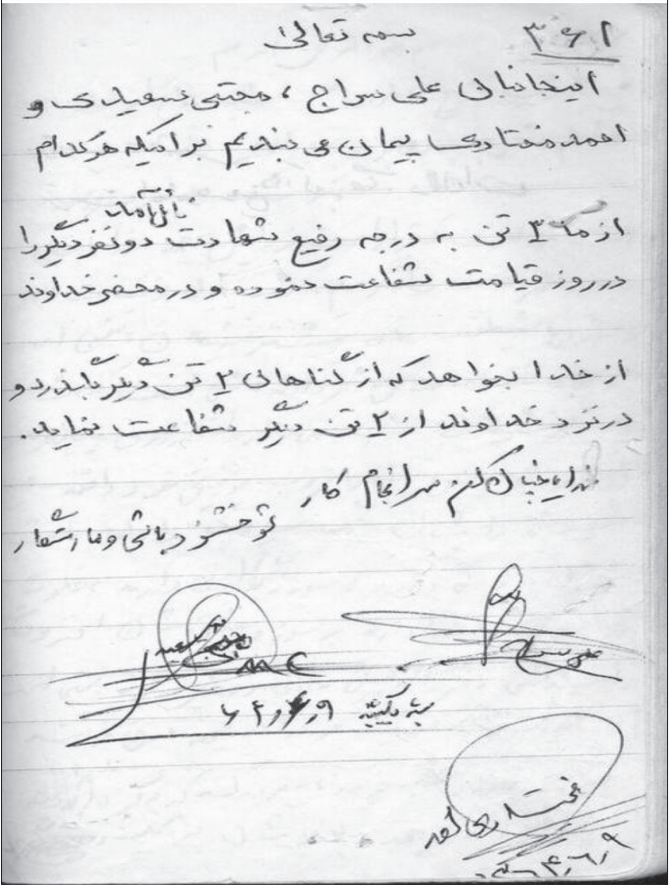 بسمه تعالی
۳۶۱
اینجانبان علی سراج ، مجتبی سعیدی و
احمد مختاری پیمان می بندیم برا اینکه هر کدام
نائل آمد
از ما ۳ تن به درجه رفیع شهادت دو نفر دیگر را
در روز قیامت شفاعت نموده و در محضر خداوند
از خدا بخواهد که از گناهان ۲ تن دیگر بگذرد و
در نزد خداوند از ۲ تن دیگر شفاعت نماید.
خدایا چنان کن سرانجام کار
تو خشنود باشی و ما رستگار
علی سراج
مجتبی سعیدی
یکشنبه
مختاری احمد